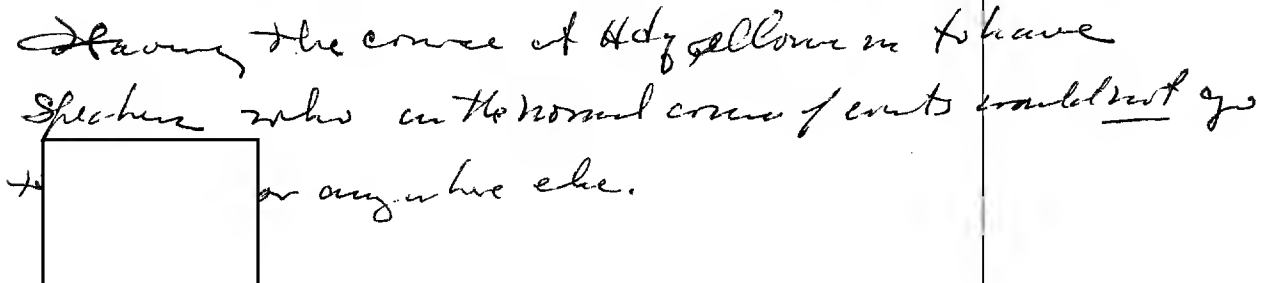 Having the course at Hdq allows us to have
Speakers who in the normal course of events would not go
to or anywhere else.